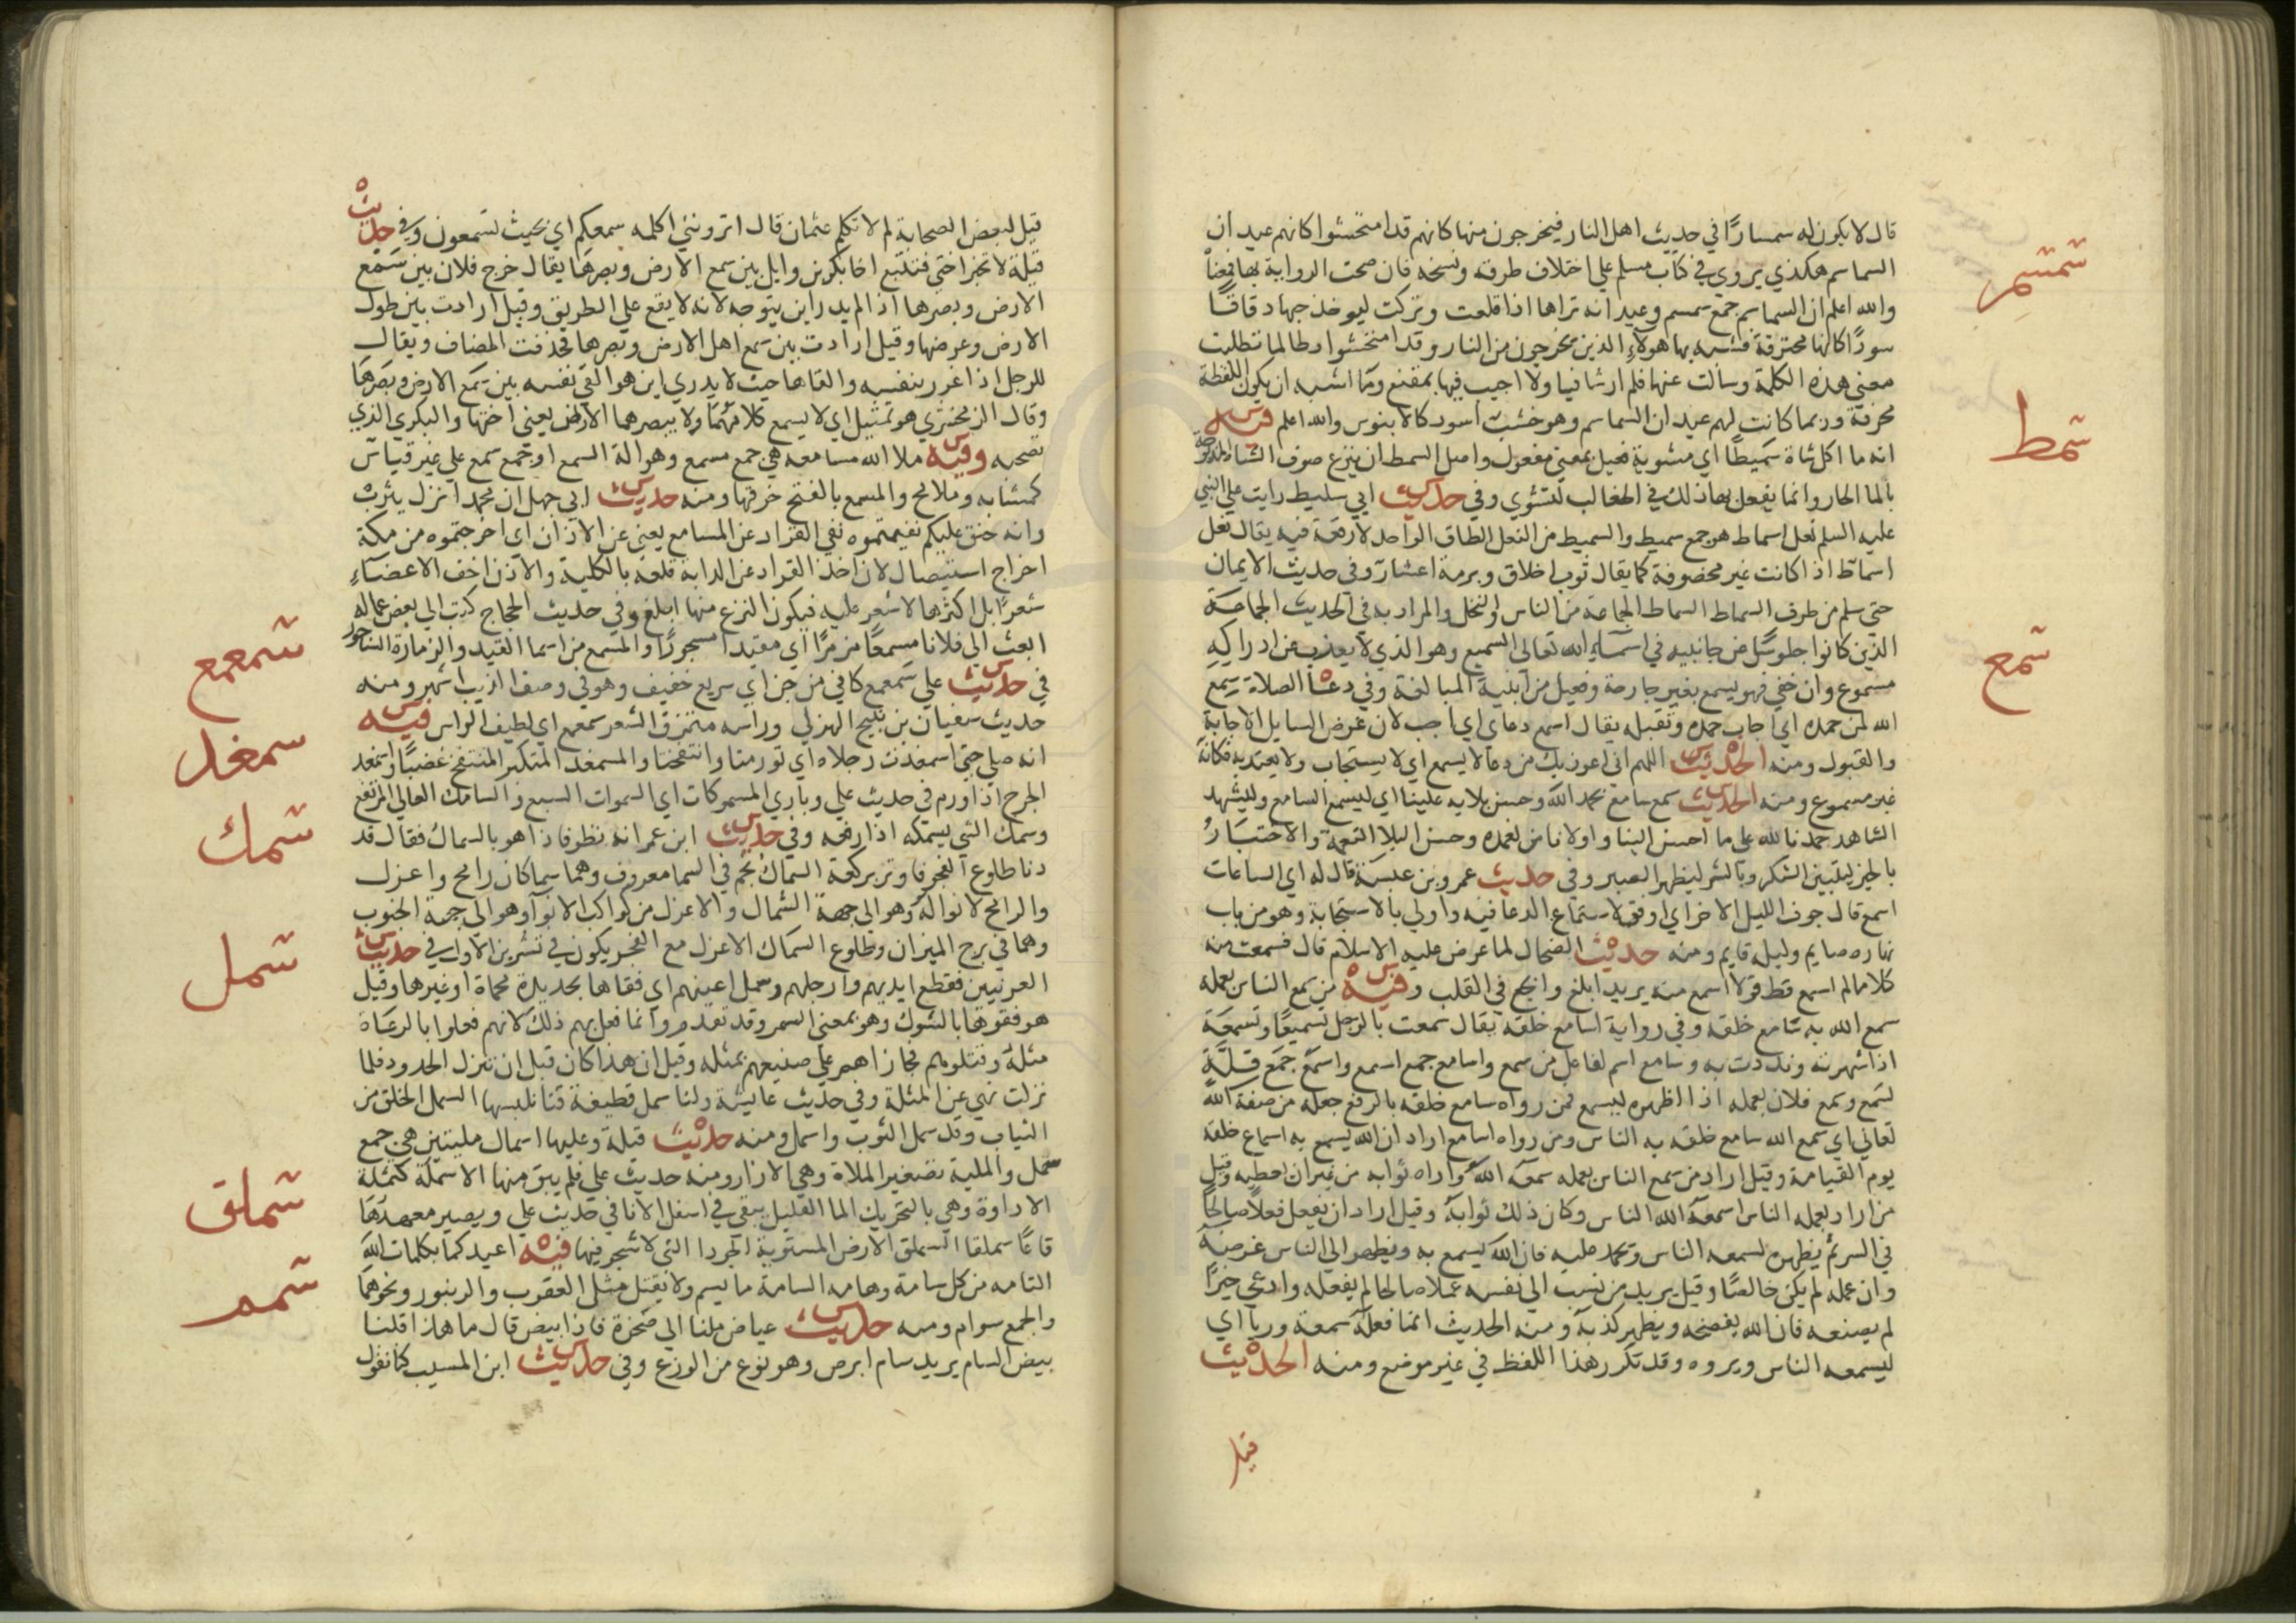 قال لا يكون له سمسارًا في حديث اهل النار فيخرجون منها كانهم قد امتحشوا كانهم عيدان
السماسم هكذي يروي في كتاب مسلم علي اختلاف طرقه ونسخه فان صحت الرواية بها فمعناه
والله اعلم ان السماسم جمع سمسم وعيدانه تراها اذا قلعت وتركت ليوخذ حبها دقاقًا
سودًا كانها محترقة فشبه بها هولاء الذين يخرجون من النار وقد امتحشوا وطالما تطلبت
معني هذه الكلمة وسالت عنها فلم ار شافيا ولا اجيب فيها بمقنع وما اشبه ان يكون اللفظة
محرفة وربما كانت كانهم عيدان السماسم وهو خشب اسود كالابنوس والله اعلم فيه
شمسر
سمط
انه ما اكل شاة سميطًا اي مشوية فعيل بمعني مفعول واصل السمط ان ينزع صوف الشاة المذبوحة
بالما الحار وانما يفعل بها ذلك في الغالب لتشوي وفي حديث ابي سليط رايت علي النبي
عليه السلم نعل اسماط هو جمع سميط والسميط من النعل الطاق الواحد لا رقعة فيه يقال نعل
اسماط اذا كانت غير مخصوفة كما يقال ثوب اخلاق وبرمة اعشار وفي حديث الايمان
حتي سلم من طرف السماط السماط الجماعة من الناس والنخل والمراد به في الحديث الجماعة
سمع
الذين كانوا جلوسًا عن جانبيه في اسماء الله تعالي السميع وهو الذي لا يعزب عن ادراكه
مسموع وان خفي فهو يسمع بغير جارحة وفعيل من ابنية المبالغة وفي دعا الصلاة سمع
الله لمن حمده اي اجاب حمده وتقبله يقال اسمع دعاي اي اجب لان غرض السايل الاجابة
والقبول ومنه الحديث اللهم اني اعوذ بك من دعا لا يسمع اي لا يستجاب ولا يعتد به فكانه
غير مسموع ومنه الحديث سمع سامع بحمد الله وحسن بلايه علينا اي ليسمع السامع وليشهد
الشاهد حمدنا لله علي ما احسن الينا واولانا من نعمه وحسن البلا النعمة والاختبار
بالخير ليتبين الشكر وبالشر ليظهر الصبر وفي حديث عمرو بن عبسة قال له اي الساعات
اسمع قال جوف الليل الاخر اي اوفق لاستماع الدعا فيه واولي بالاستجابة وهو من باب
نهاره صايم وليله قايم ومنه حديث الضحاك لما عرض عليه الاسلام قال فسمعت منه
كلاما لم اسمع قط قولا اسمع منه يريد ابلغ وانجع في القلب وفيه من سمع الناس بعمله
سمع الله به سامع خلقه وفي رواية اسامع خلقه يقال سمعت بالرجل تسميعًا وتسمعة
اذا شهرته ونددت به وسامع اسم لفاعل من سمع واسامع جمع اسمع واسمع جمع قلة
لسمع وسمع فلان بعمله اذا اظهره ليسمع فمن رواه سامع خلقه بالرفع جعله من صفة الله
تعالي اي سمع الله سامع خلقه به الناس ومن رواه اسامع اراد ان الله يسمع به اسماع خلقه
يوم القيامة وقيل اراد من سمع الناس بعمله سمعه الله واراه ثوابه من غير ان يعطيه وقيل
من اراد بعمله الناس اسمعه الله الناس وكان ذلك ثوابه وقيل اراد ان يفعل فعلًا صالحًا
في السر ثم يظهره لسمعه الناس ويحمد عليه فان الله يسمع به ويظهر الي الناس غرضه
وان عمله لم يكن خالصًا وقيل يريد من نسب الي نفسه عملا صالحا لم يفعله وادعي خيرًا
لم يصنعه فان الله يفضحه ويظهر كذبه ومنه الحديث انما فعله سمعة وريا اي
ليسمعه الناس ويروه وقد تكرر هذا اللفظ في غير موضع ومنه الحديث
قيل
قيل لبعض الصحابة لم لا تكلم عثمان قال اترونني اكلمه سمعكم اي بحيث تسمعون وفي حديث
قيلة لا تخبر اختي فتتبع اخا بكر بن وايل بين سمع الارض وبصرها يقال خرج فلان بين سمع
الارض وبصرها اذا لم يدر اين يتوجه لانه لا يقع علي الطريق وقيل ارادت بين طول
الارض وعرضها وقيل ارادت بين سمع اهل الارض وبصرها فحذفت المضاف ويقال
للرجل اذا غرر بنفسه والقاها حيث لا يدري اين هو القي نفسه بين سمع الارض وبصرها
وقال الزمخشري هو تمثيل اي لا يسمع كلامهما ولا يبصرهما الا الارض يعني اختها والبكري الذي
تصحبه وفيه ملا الله مسامعه هي جمع مسمع وهو الة السمع او جمع سمع علي غير قياس
كمشابه وملامح والمسمع بالفتح خرقها ومنه حديث ابي جهل ان محمدا نزل يثرب
وانه حنق عليكم نفيتموه نفي القراد عن المسامع يعني عن الاذان اي اخرجتموه من مكة
اخراج استيصال لان اخذ القراد عن الدابة قلعه بالكلية والاذن اخف الاعضاء
شعرًا بل اكثرها لا شعر عليه فيكون النزع منها ابلغ وفي حديث الحجاج كتب الي بعض عماله
ابعث الي فلانا مسمعًا مزمرًا اي مقيدا مسجورًا والمسمع من اسما القيد والزمارة الساجور
سمعمع
في حديث علي سمعمع كاني من جن اي سريع خفيف وهو في وصف الذيب اشهر ومنه
حديث سفيان بن نبيح الهذلي وراسه متمزق الشعر سمعمع اي لطيف الراس فيه
سمغد
انه صلي حتي اسمغدت رجلاه اي تورمتا وانتفختا والمسمغد المتكبر المنتفخ غضبًا واسمغد
الجرح اذا ورم في حديث علي وباري المسموكات اي السموات السبع والسامك العالي المرتفع
سمك
وسمك الشي يسمكه اذا رفعه وفي حديث ابن عمر انه نظر فاذا هو بالسماك فقال قد
دنا طلوع الفجر فاوتر بركعة السماك نجم في السما معروف وهما سماكان رامح واعزل
والرامح لا نوا له وهو الي جهة الشمال والاعزل من كواكب الانوا وهو الي جهة الجنوب
وهما في برج الميزان وطلوع السماك الاعزل مع الفجر يكون في تشرين الاول في حديث
سمل
العرنيين فقطع ايديهم وارجلهم وسمل اعينهم اي فقاها بحديدة محماة او غيرها وقيل
هو فقوها بالشوك وهو بمعني السمر وقد تقدم وانما فعل بهم ذلك لانهم فعلوا بالرعاة
مثله وقتلوهم فجازاهم علي صنيعهم بمثله وقيل ان هذا كان قبل ان تنزل الحدود فلما
نزلت نهي عن المثلة وفي حديث عايشة ولنا سمل قطيفة كنا نلبسها السمل الخلق من
الثياب وقد سمل الثوب واسمل ومنه حديث قيلة وعليها اسمال مليتين هي جمع
سمل والملية تصغير الملاة وهي الازار ومنه حديث علي فلم يبق منها الا سملة كسملة
الاداوة وهي بالتحريك الما القليل يبقي في اسفل الانا في حديث علي ويصير معهدها
سملق
قاعًا سملقا السملق الارض المستوية الجردا التي لا شجر فيها فيه اعيدكما بكلمات الله
سمم
التامه من كل سامة وهامه السامة ما يسم ولا يقتل مثل العقرب والزنبور ونحوهما
والجمع سوام ومنه حديث عياض ملنا الي صخرة فاذا بيض قال ما هذا قلنا
بيض السام يريد سام ابرص وهو نوع من الوزغ وفي حديث ابن المسيب كنا نقول